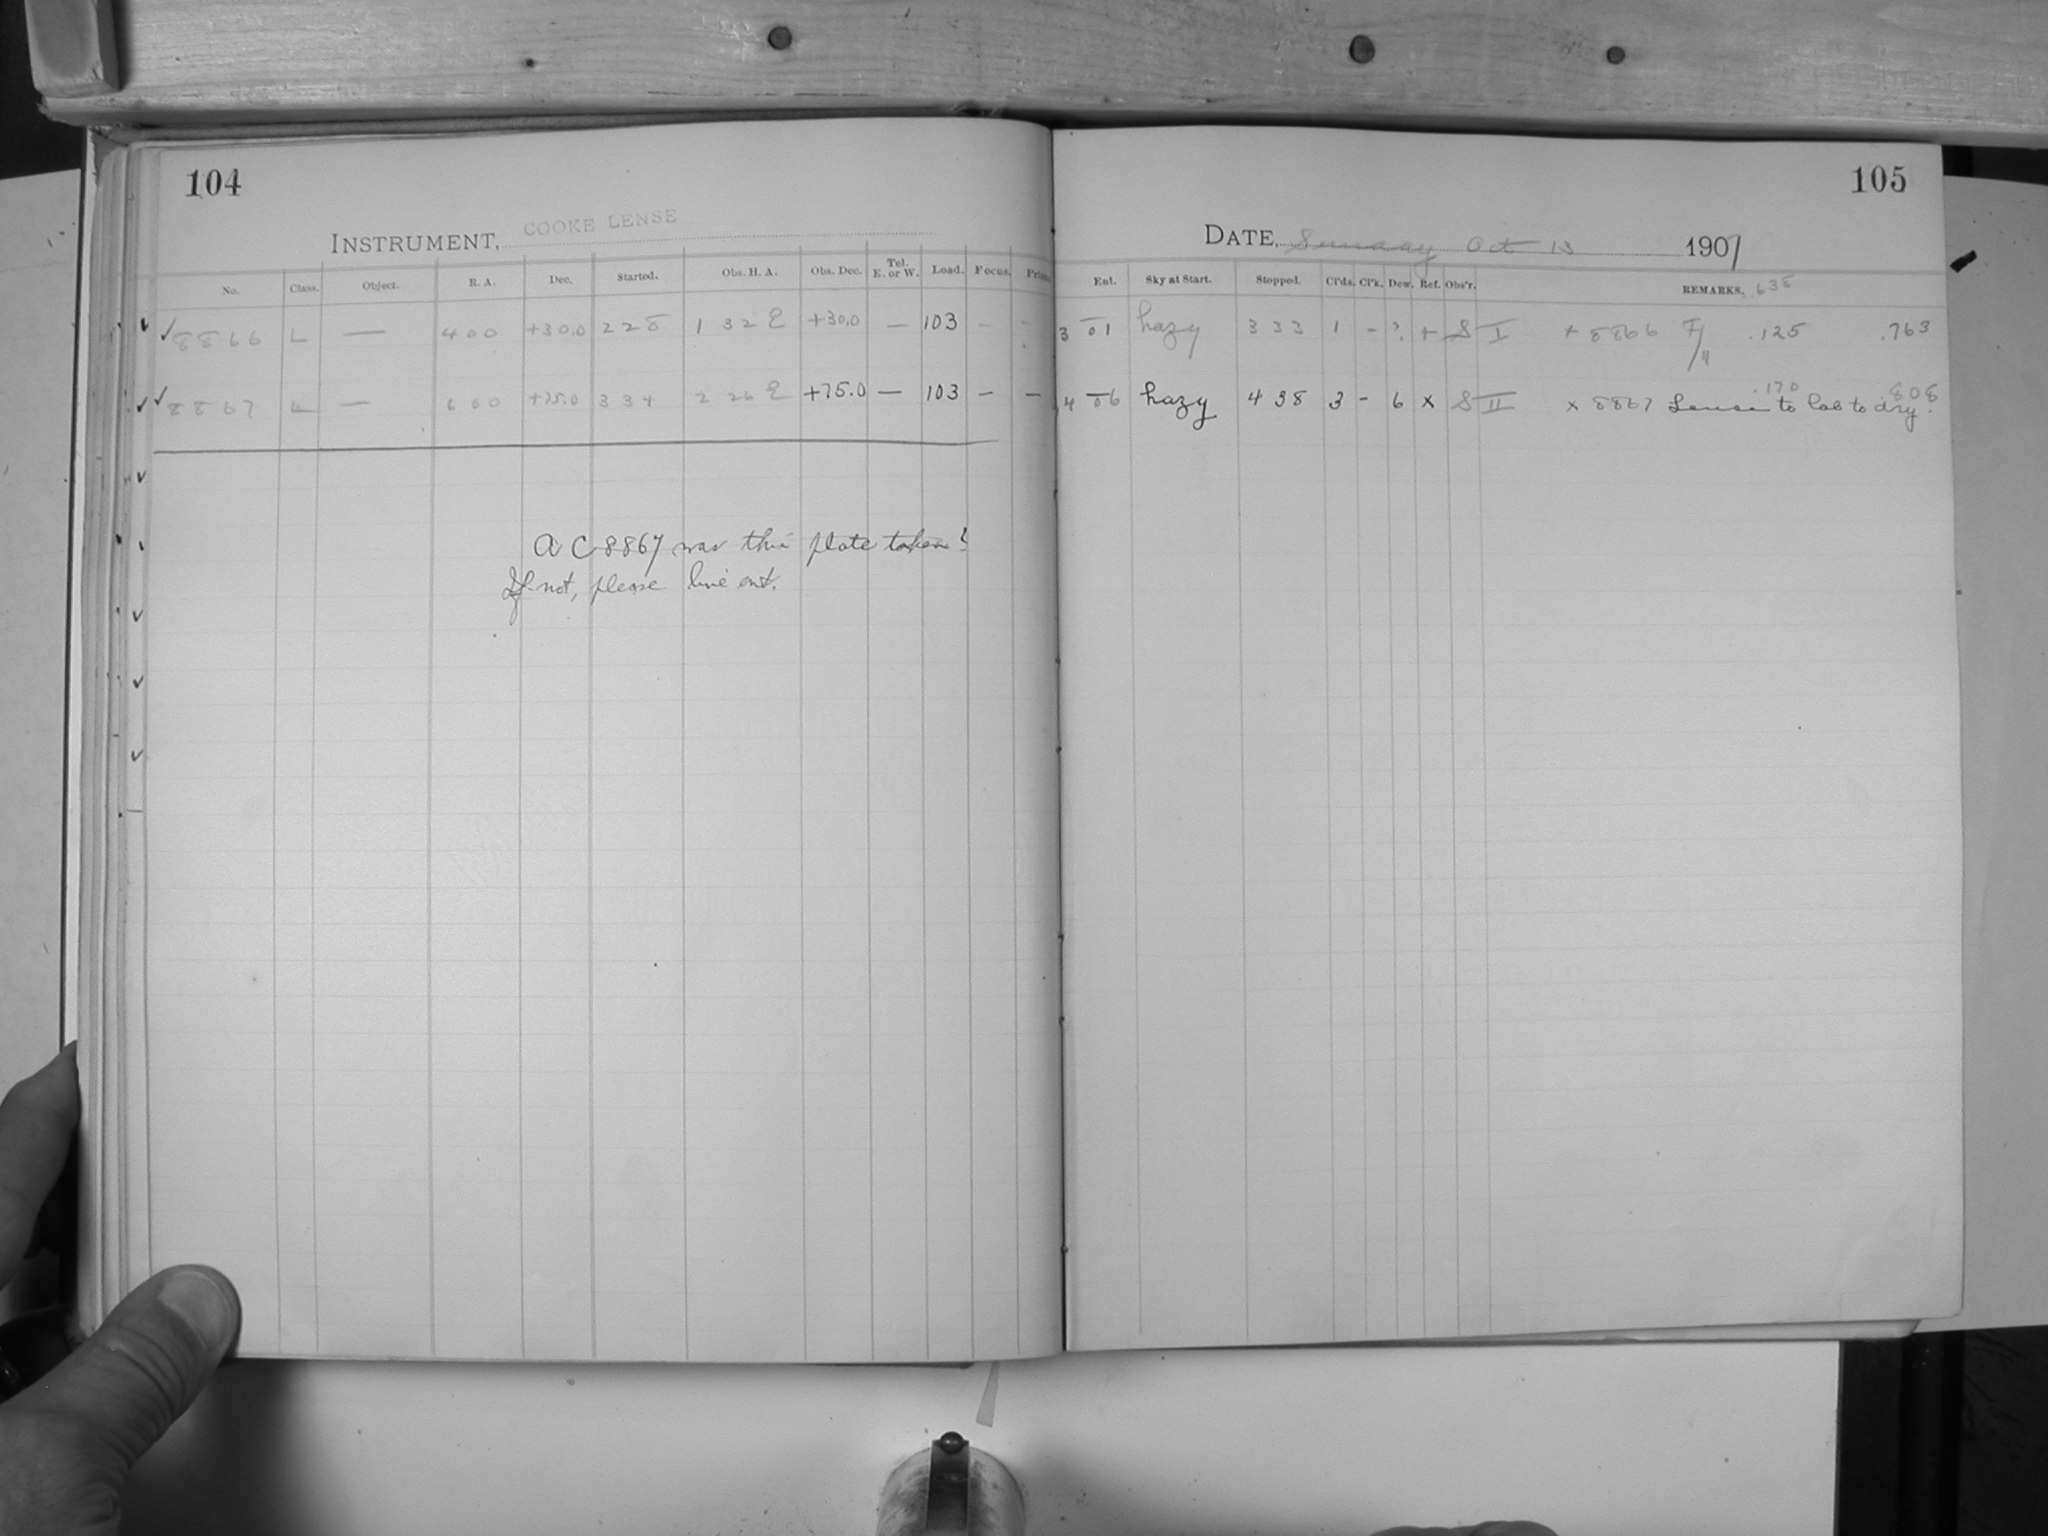 104
INSTRUMENT, COOKE LENSE
No. Class. Object. R. A. Dec. Started. Obs. H. A. Obs. Dec. Tel. E. or W. Load. Focus. Prism
✓ 8866 L — 4 00 +30.0 2 28 1 32 E +30.0 — 103 – –
✓ 8867 L — 6 00 +75.0 3 34 2 26 E +75.0 — 103 – –
A C 8867 was this plate taken?
If not, please line out.
105
DATE, Sunday Oct 13 1907
Ent. Sky at Start. Stopped. Cl'ds. Cl'k. Dew. Ref. Obs'r. REMARKS, .638
3 01 hazy 3 33 1 – ? + S I + 8866 F/11 .125 .763
.170 .808
4 06 hazy 4 38 3 – 6 x S II x 8867 Lense to lab to dry.